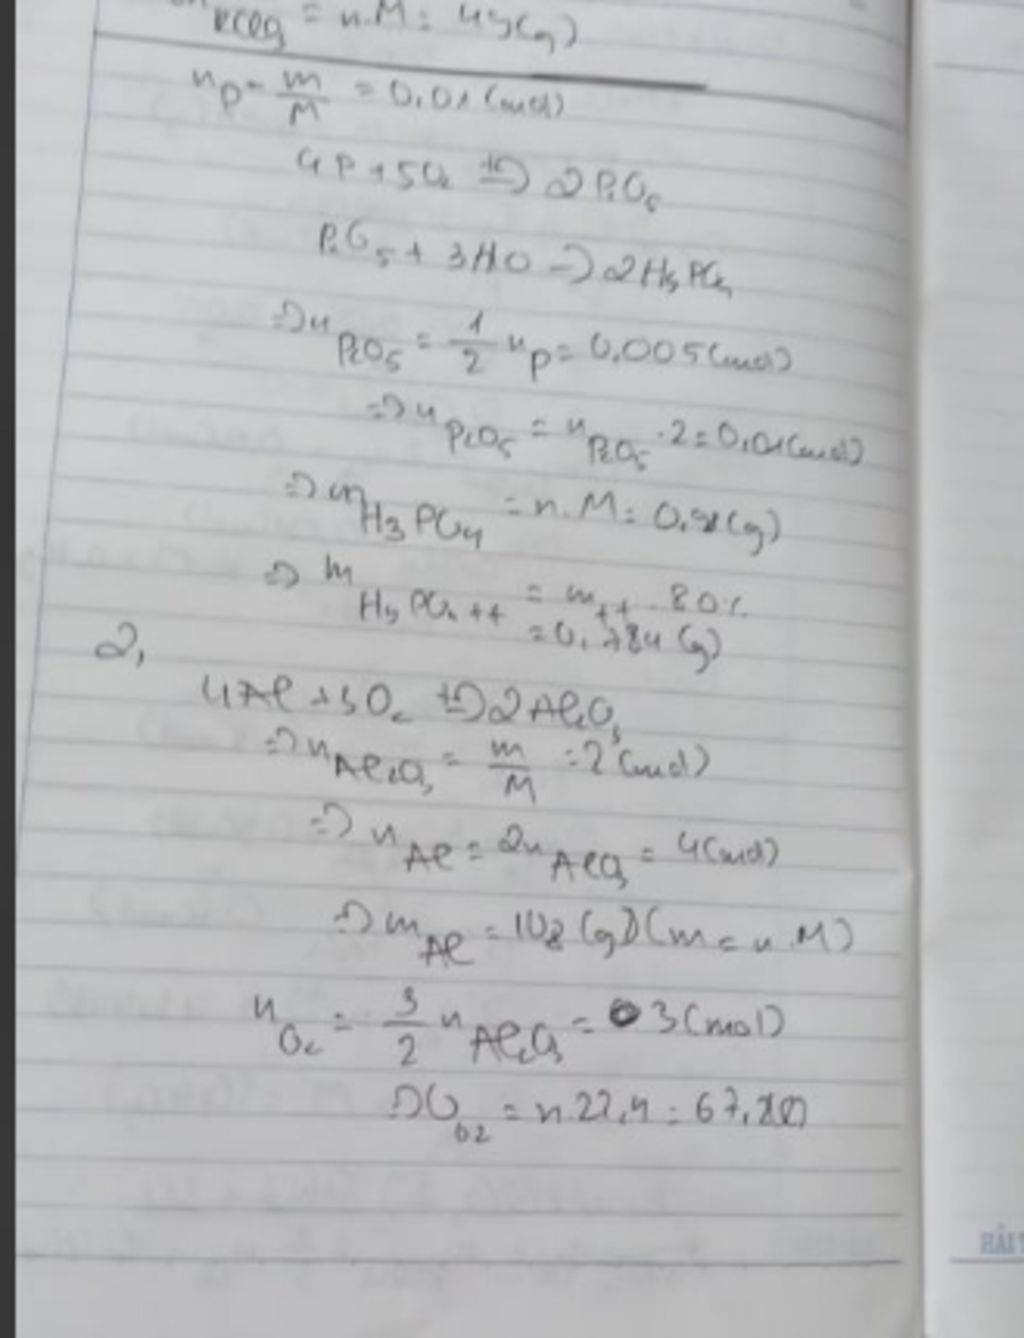 = n.M = 49(g)
n P = m/M = 0,01 (mol)
4P + 5O2 t°→ 2P2O5
P2O5 + 3H2O → 2H3PO4
=> n P2O5 = 1/2 n P = 0,005 (mol)
=> n P2O5 = n P2O5 . 2 = 0,01 (mol)
=> m H3PO4 = n.M = 0,98 (g)
=> m H3PO4 tt = m tt . 80%
= 0,784 (g)
2,
4Al + 3O2 t°→ 2Al2O3
=> n Al2O3 = m/M = 2 (mol)
=> n Al = 2n Al2O3 = 4 (mol)
=> m Al = 108 (g) (m = n.M)
n O2 = 3/2 n Al2O3 = 3 (mol)
=> V O2 = n.22,4 = 67,2 (l)
HẢI